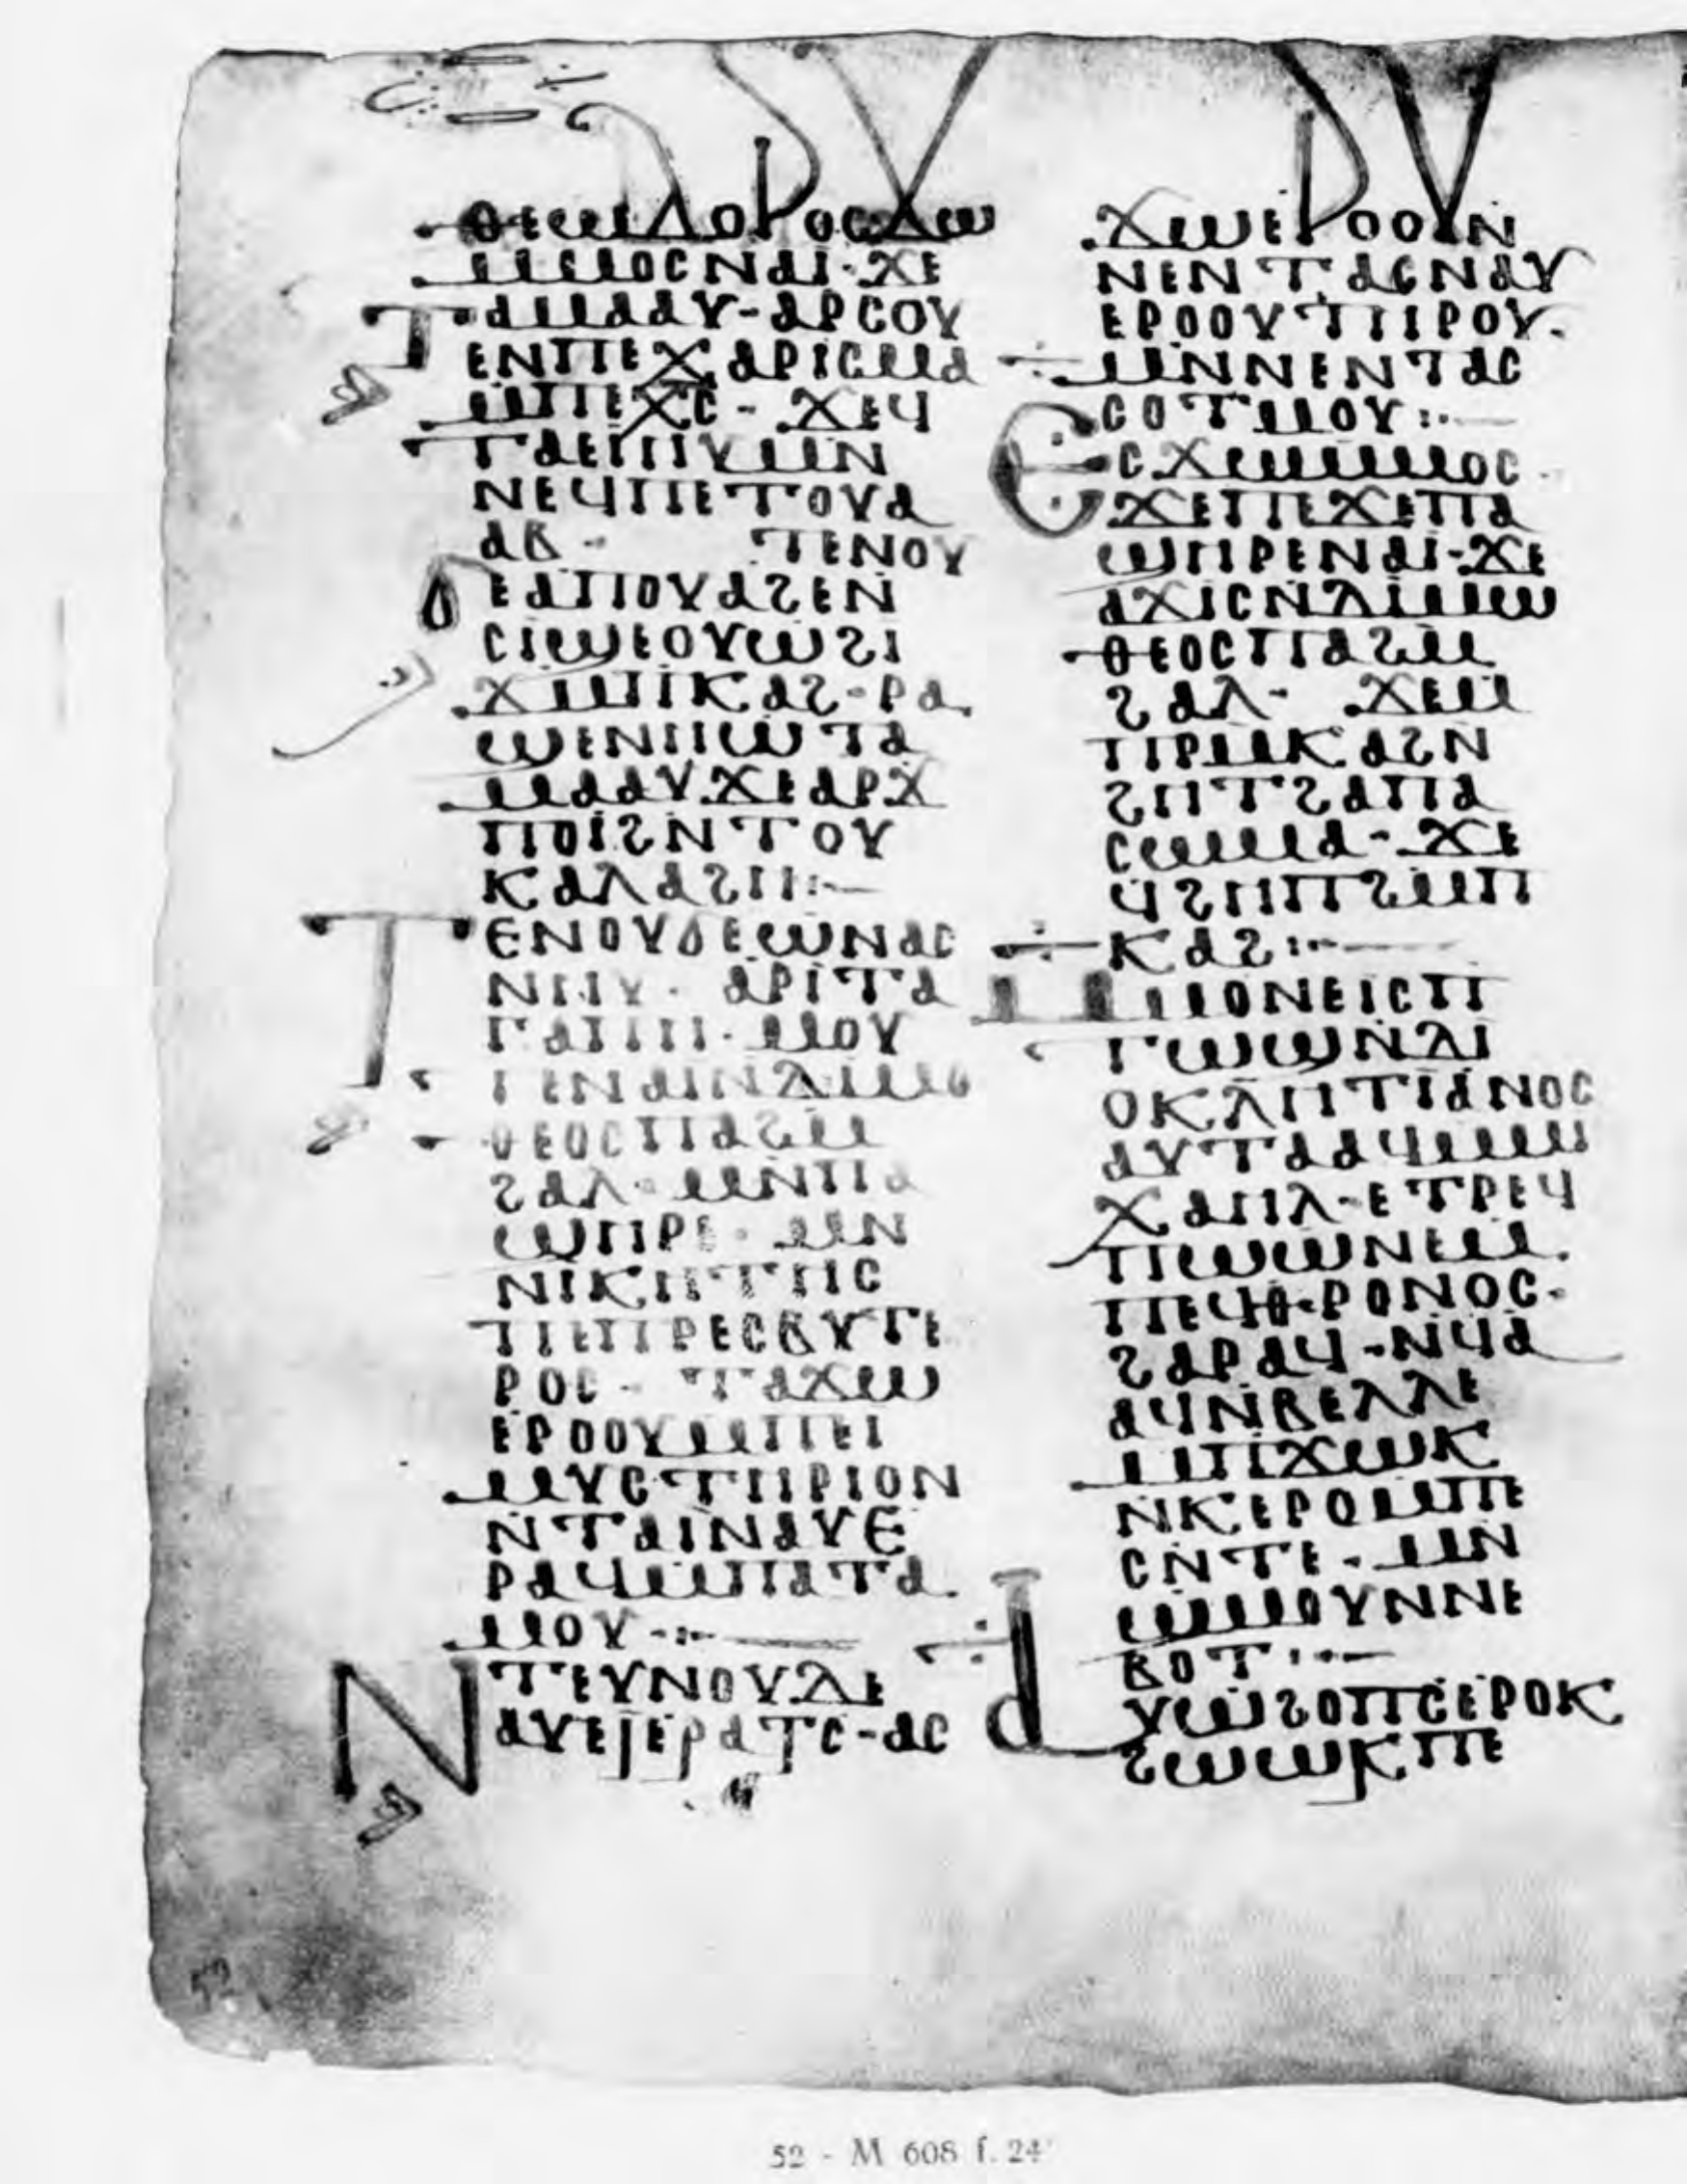 ⲑⲉⲱⲇⲟⲣⲟⲥϫⲱ
ⲙⲙⲟⲥⲛⲁⲓ·ϫⲉ
ⲧⲁⲙⲁⲁⲩ-ⲁⲣⲥⲟⲩ
ⲉⲛⲡⲉⲭⲁⲣⲓⲥⲙⲁ
ⲙⲡⲉⲭⲥ- ϫⲉϥ
ⲧⲁⲉⲓⲏⲩⲙⲛ
ⲛⲉϥⲡⲉⲧⲟⲩⲁ
ⲁⲃ- ⲧⲉⲛⲟⲩ
ϭⲉⲁⲡⲟⲩⲁϩⲉⲛ
ⲥⲓϣⲉⲟⲩⲱϩⲓ
ϫⲙⲡⲕⲁϩ-ⲣⲁ
ϣⲉⲛⲏⲱⲧⲁ
ⲙⲁⲁⲩ.ϫⲉⲁⲣϫ
ⲡⲟⲓϩⲛⲧⲟⲩ
ⲕⲁⲗⲁϩⲏ:—
ⲧⲉⲛⲟⲩϭⲉⲱⲛⲁⲥ
ⲛⲏⲩ· ⲁⲣⲓⲧⲁ
ⲅⲁⲡⲏ·ⲙⲟⲩ
ⲧⲉⲛⲁⲓⲛⲇⲓⲙⲟ
ⲑⲉⲟⲥⲡⲁϩⲙ
ϩⲁⲗ·ⲙⲛⲡⲁ
ϣⲏⲣⲉ· ⲙⲛ
ⲛⲓⲕⲏⲧⲏⲥ
ⲡⲉⲡⲣⲉⲥⲃⲩⲧⲉ
ⲣⲟⲥ- ⲧⲁϫⲱ
ⲉⲣⲟⲟⲩⲙⲡⲉⲓ
ⲙⲩⲥⲧⲏⲣⲓⲟⲛ
ⲛⲧⲁⲓⲛⲁⲩⲉ
ⲣⲁϥⲙⲡⲁⲧⲁ
ⲙⲟⲩ-:—
ⲛⲧⲉⲩⲛⲟⲩⲇⲉ
ⲁⲩⲉⲓⲉⲣⲁⲧⲥ-ⲁⲥ
ϫⲱⲉⲣⲟⲟⲩⲛ
ⲛⲉⲛⲧⲁⲥⲛⲁⲩ
ⲉⲣⲟⲟⲩⲧⲏⲣⲟⲩ·
ⲙⲛⲛⲉⲛⲧⲁⲥ
ⲥⲟⲧⲙⲟⲩ:·—
ⲉⲥϫⲱⲙⲙⲟⲥ
ϫⲉⲡⲉϫⲉⲡⲁ
ϣⲏⲣⲉⲛⲁⲓ-ϫⲉ
ⲁϫⲓⲥⲛⲇⲓⲙⲱ
ⲑⲉⲟⲥⲡⲁϩⲙ
ϩⲁⲗ- ϫⲉⲙ
ⲡⲣⲙⲕⲁϩⲛ
ϩⲏⲧϩⲁⲡⲁ
ⲥⲱⲙⲁ-ϫⲉ
ϥϩⲏⲡϩⲙⲡ
ⲕⲁϩ:·—
ⲙⲟⲛⲉⲓⲥⲡ
ⲧⲱⲱⲛⲇⲓ
ⲟⲕⲗⲏⲧⲓⲁⲛⲟⲥ
ⲁⲩⲧⲁⲁϥⲙⲙⲓ
ⲭⲁⲏⲗ-ⲉⲧⲣⲉϥ
ⲡⲱⲱⲛⲉⲙ
ⲡⲉϥⲑⲣⲟⲛⲟⲥ·
ϩⲁⲣⲁϥ-ⲛϥⲁ
ⲁϥⲛⲃⲉⲗⲗⲉ
ⲙⲡϫⲱⲕ
ⲛⲕⲉⲣⲟⲙⲡⲉ
ⲥⲛⲧⲉ· ⲙⲛ
ϣⲙⲟⲩⲛⲛⲉ
ⲃⲟⲧ:·—
ⲁⲩⲱϩⲟⲡⲥⲉⲣⲟⲕ
ϩⲱⲱⲕⲡⲉ
52 - M 608 f. 24ᵛ